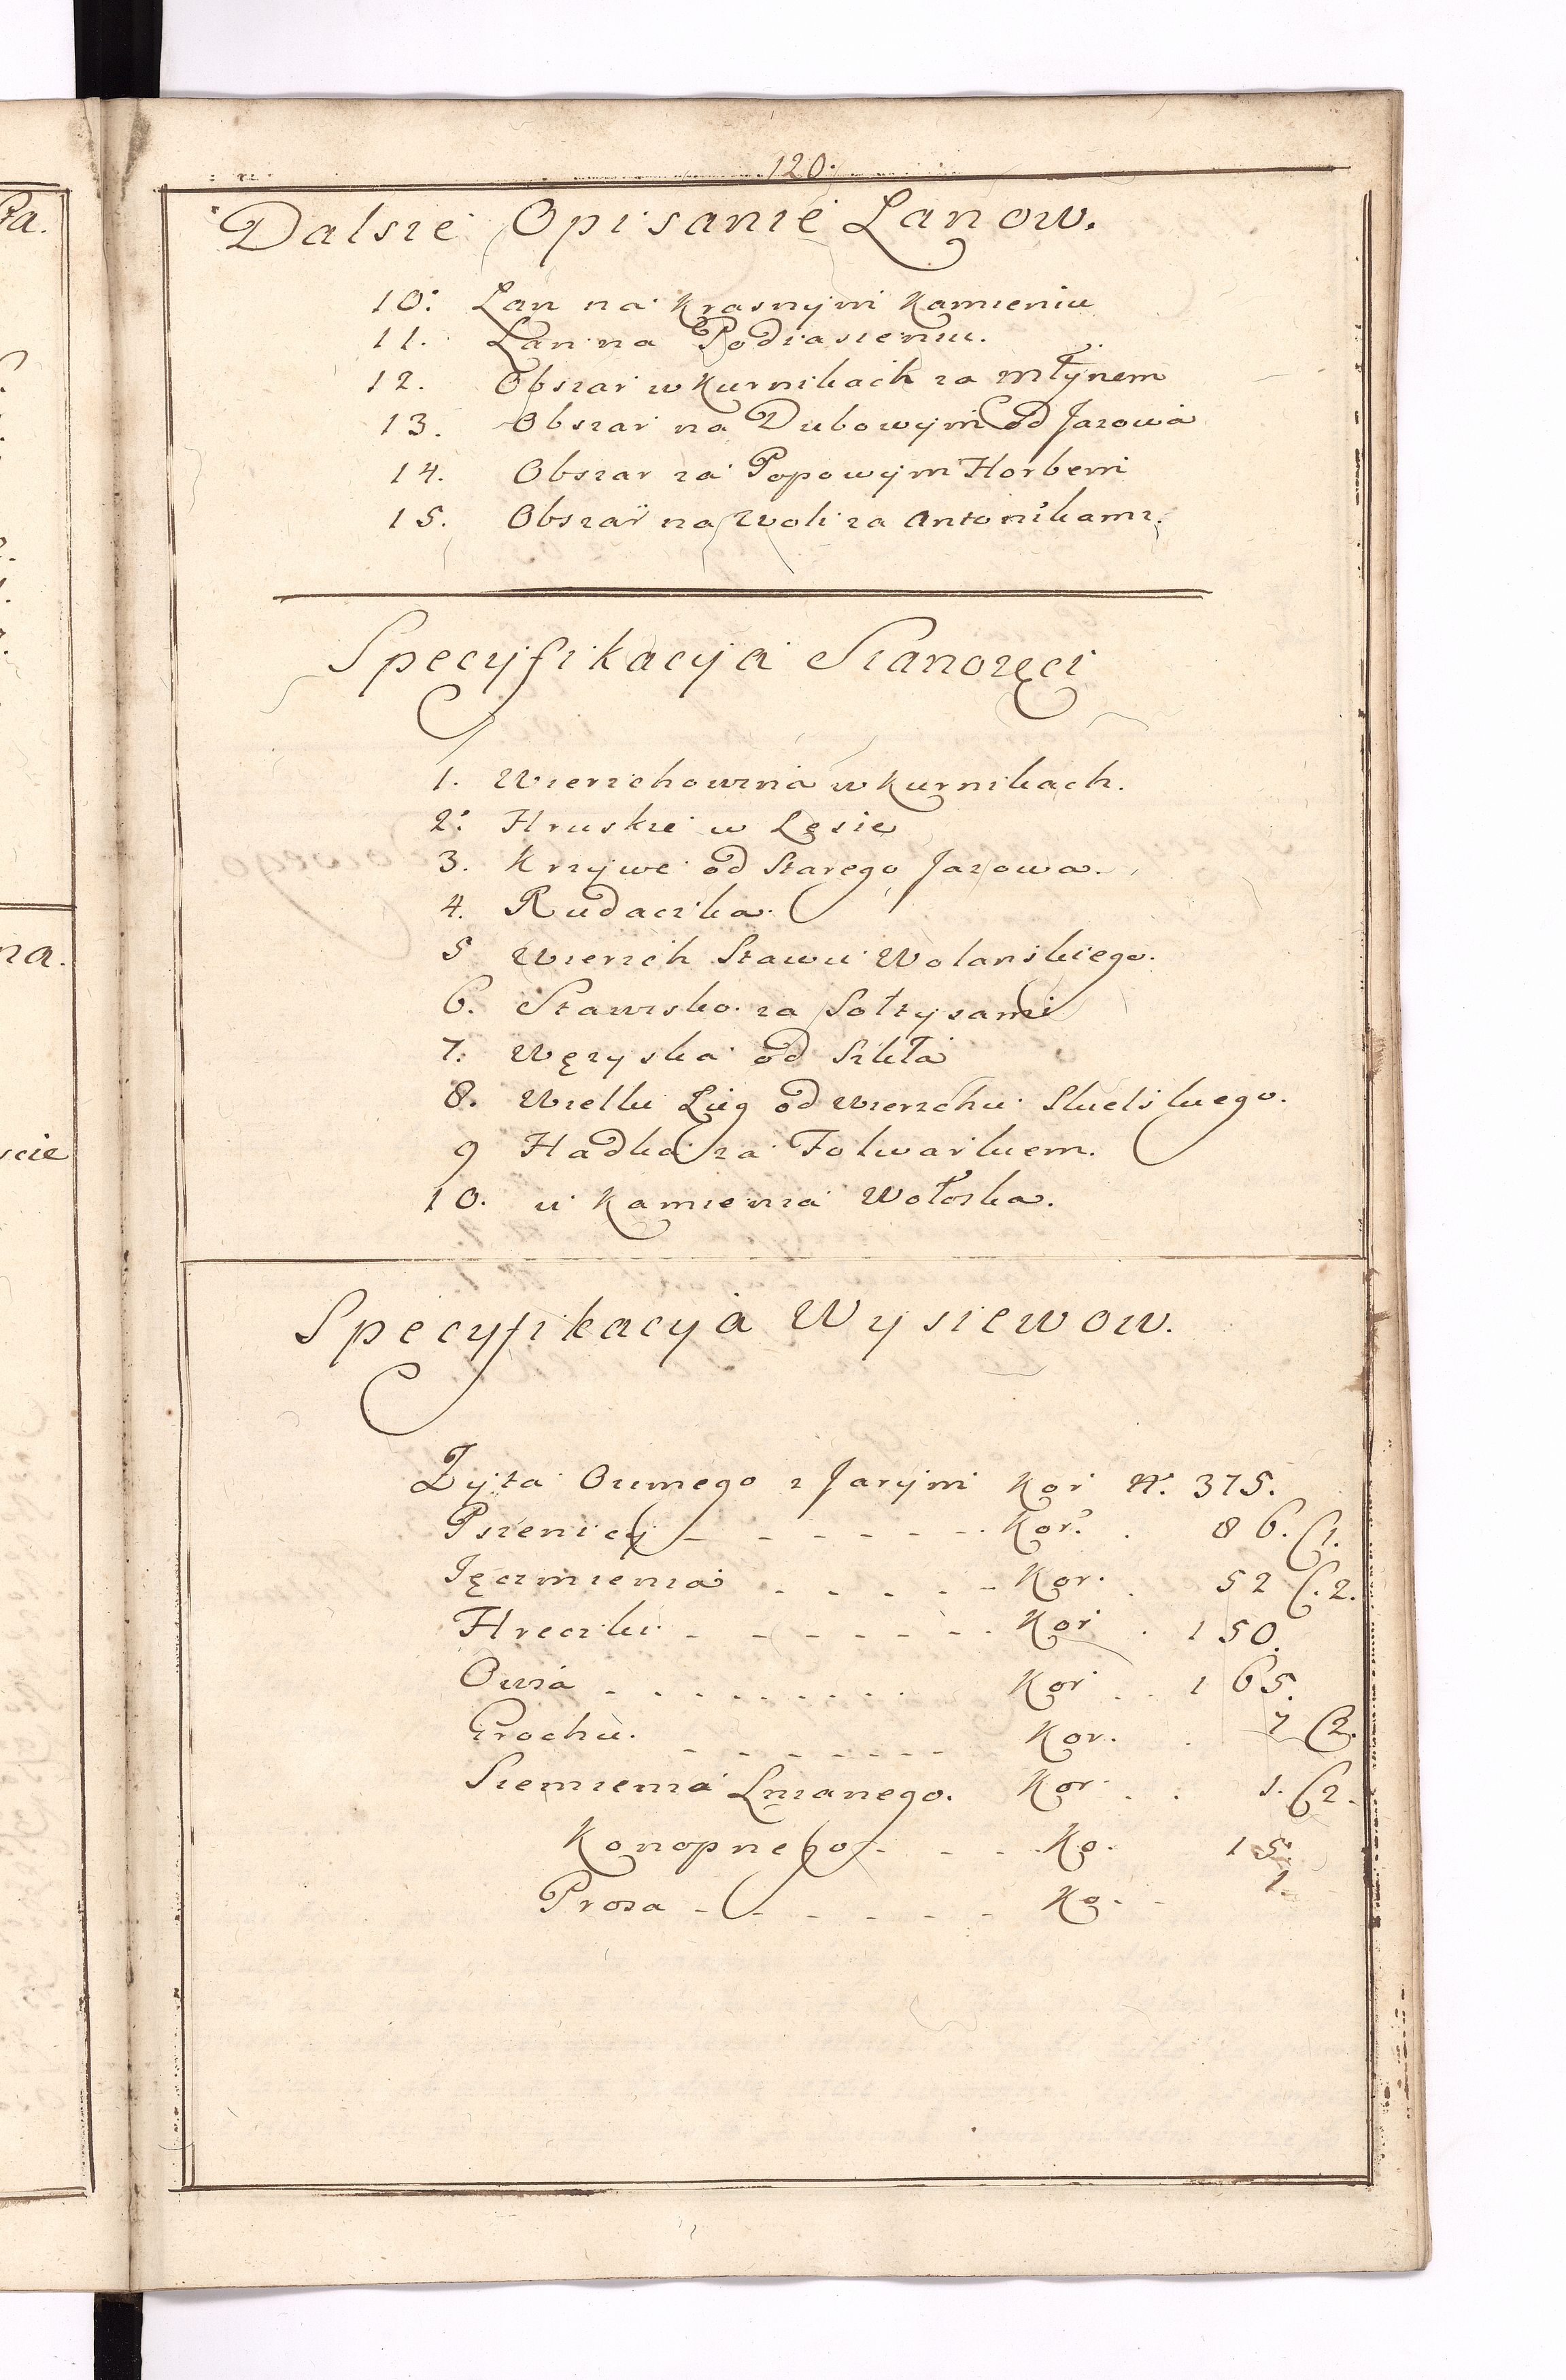 120.
Dalsze Opisanie Lanow.
10. Lan na Krasnym Kamieniu
11. Lan na Podiasieniu.
12. Obszar w Kurnikach za Młynem
13. Obszar na Dubowym od Jazowa
14. Obszar za Popowym Horbem
15. Obszar na Woli za Antonikami.
Specyfikacya Sianozęci
1. Wierzchowina w Kurnikach.
2. Hruskie w Lęsie
3. Krzywe od Starego Jazowa.
4. Rudaczka.
5 Wierzch Stawu Wolanskiego.
6. Stawisko za Sołtysami
7. Węzyska od Szkła
8. Wielki Lug od Wierzchu Skielskiego.
9 Hadka za Folwarkiem.
10. u Kamienia Wołoska.
Specyfikacya Wysiewow.
Zyta Ozimego z Jarym Kor N. 375.
Pszenicy - - - - - - - Kor. 86. C1.
Jęczmienia - - - - - Kor. 52 C.2.
Hreczki - - - - - - - Kor 150.
Owsa - - - - - - - - - Kor 165.
Grochu. - - - - - - - Kor. 7 C2.
Siemienia Lnianego. Kor 1. C2.
Konopnego - - - Ko. 15.
Prosa - - - - - - Ko. 1.